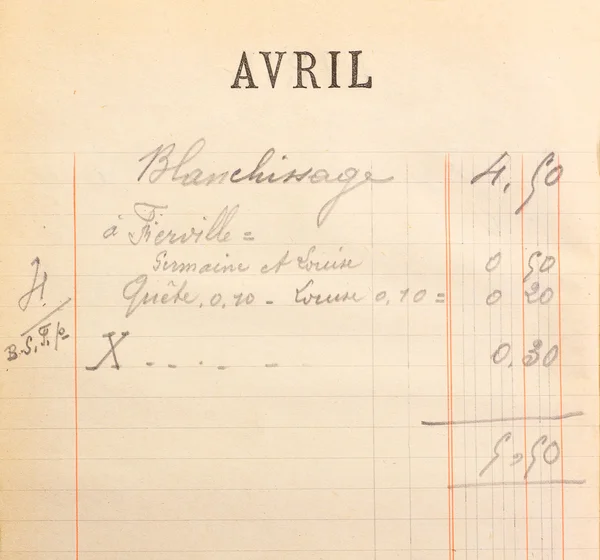 AVRIL
Blanchissage 4,50
à Fierville =
Germaine et Louise 0 50
Quête, 0,10 - Louise 0,10 = 0 20
X - - . - - 0,30
5,50